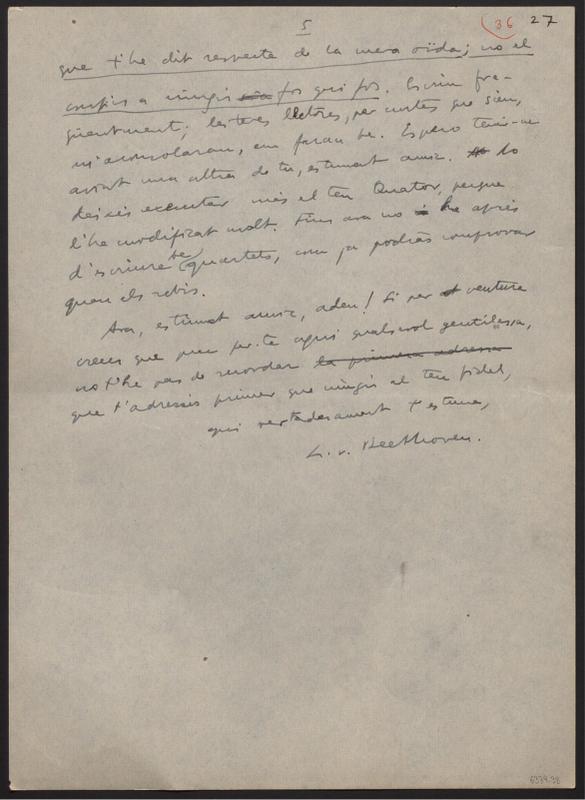 5
36 27
que t'he dit respecte de la meva oïda; no el
confiïs a ningú fos qui fos. Escriu fre-
qüentment; les teves lletres, per curtes que sien,
m'aconsolaran, em faran be. Espero tenir-ne
aviat una altra de tu, estimat amic. No
deixis executar més el teu Quator, perque
l'he modificat molt. Fins ara no he après
d'escriure be quartets, com ja podràs comprovar
quan els rebis.
Ara, estimat amic, adeu! Si per ventura
creus que puc fer-te aquí qualsevol gentilesa,
no t'he pas de recordar la primera adressa
que t'adressis primer que ningú al teu fidel,
qui vertaderament t'estima,
L. v. Beethoven.
6339.38